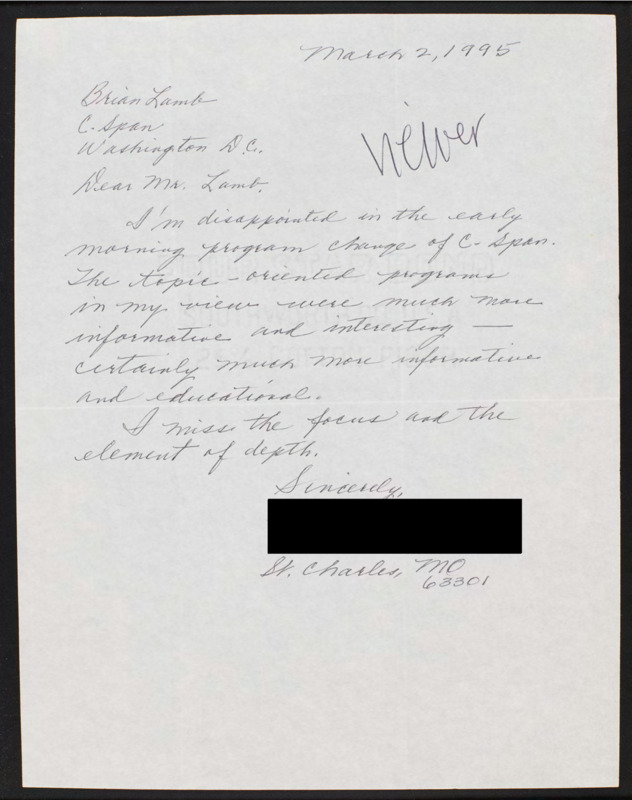 March 2, 1995
Brian Lamb
C. Span
Washington D.C.
viewer
Dear Mr. Lamb,
I'm disappointed in the early
morning program change of C-Span.
The topic-oriented programs
in my view were much more
informative and interesting —
certainly much more informative
and educational.
I miss the focus and the
element of depth.
Sincerely,
St. Charles, MO
63301